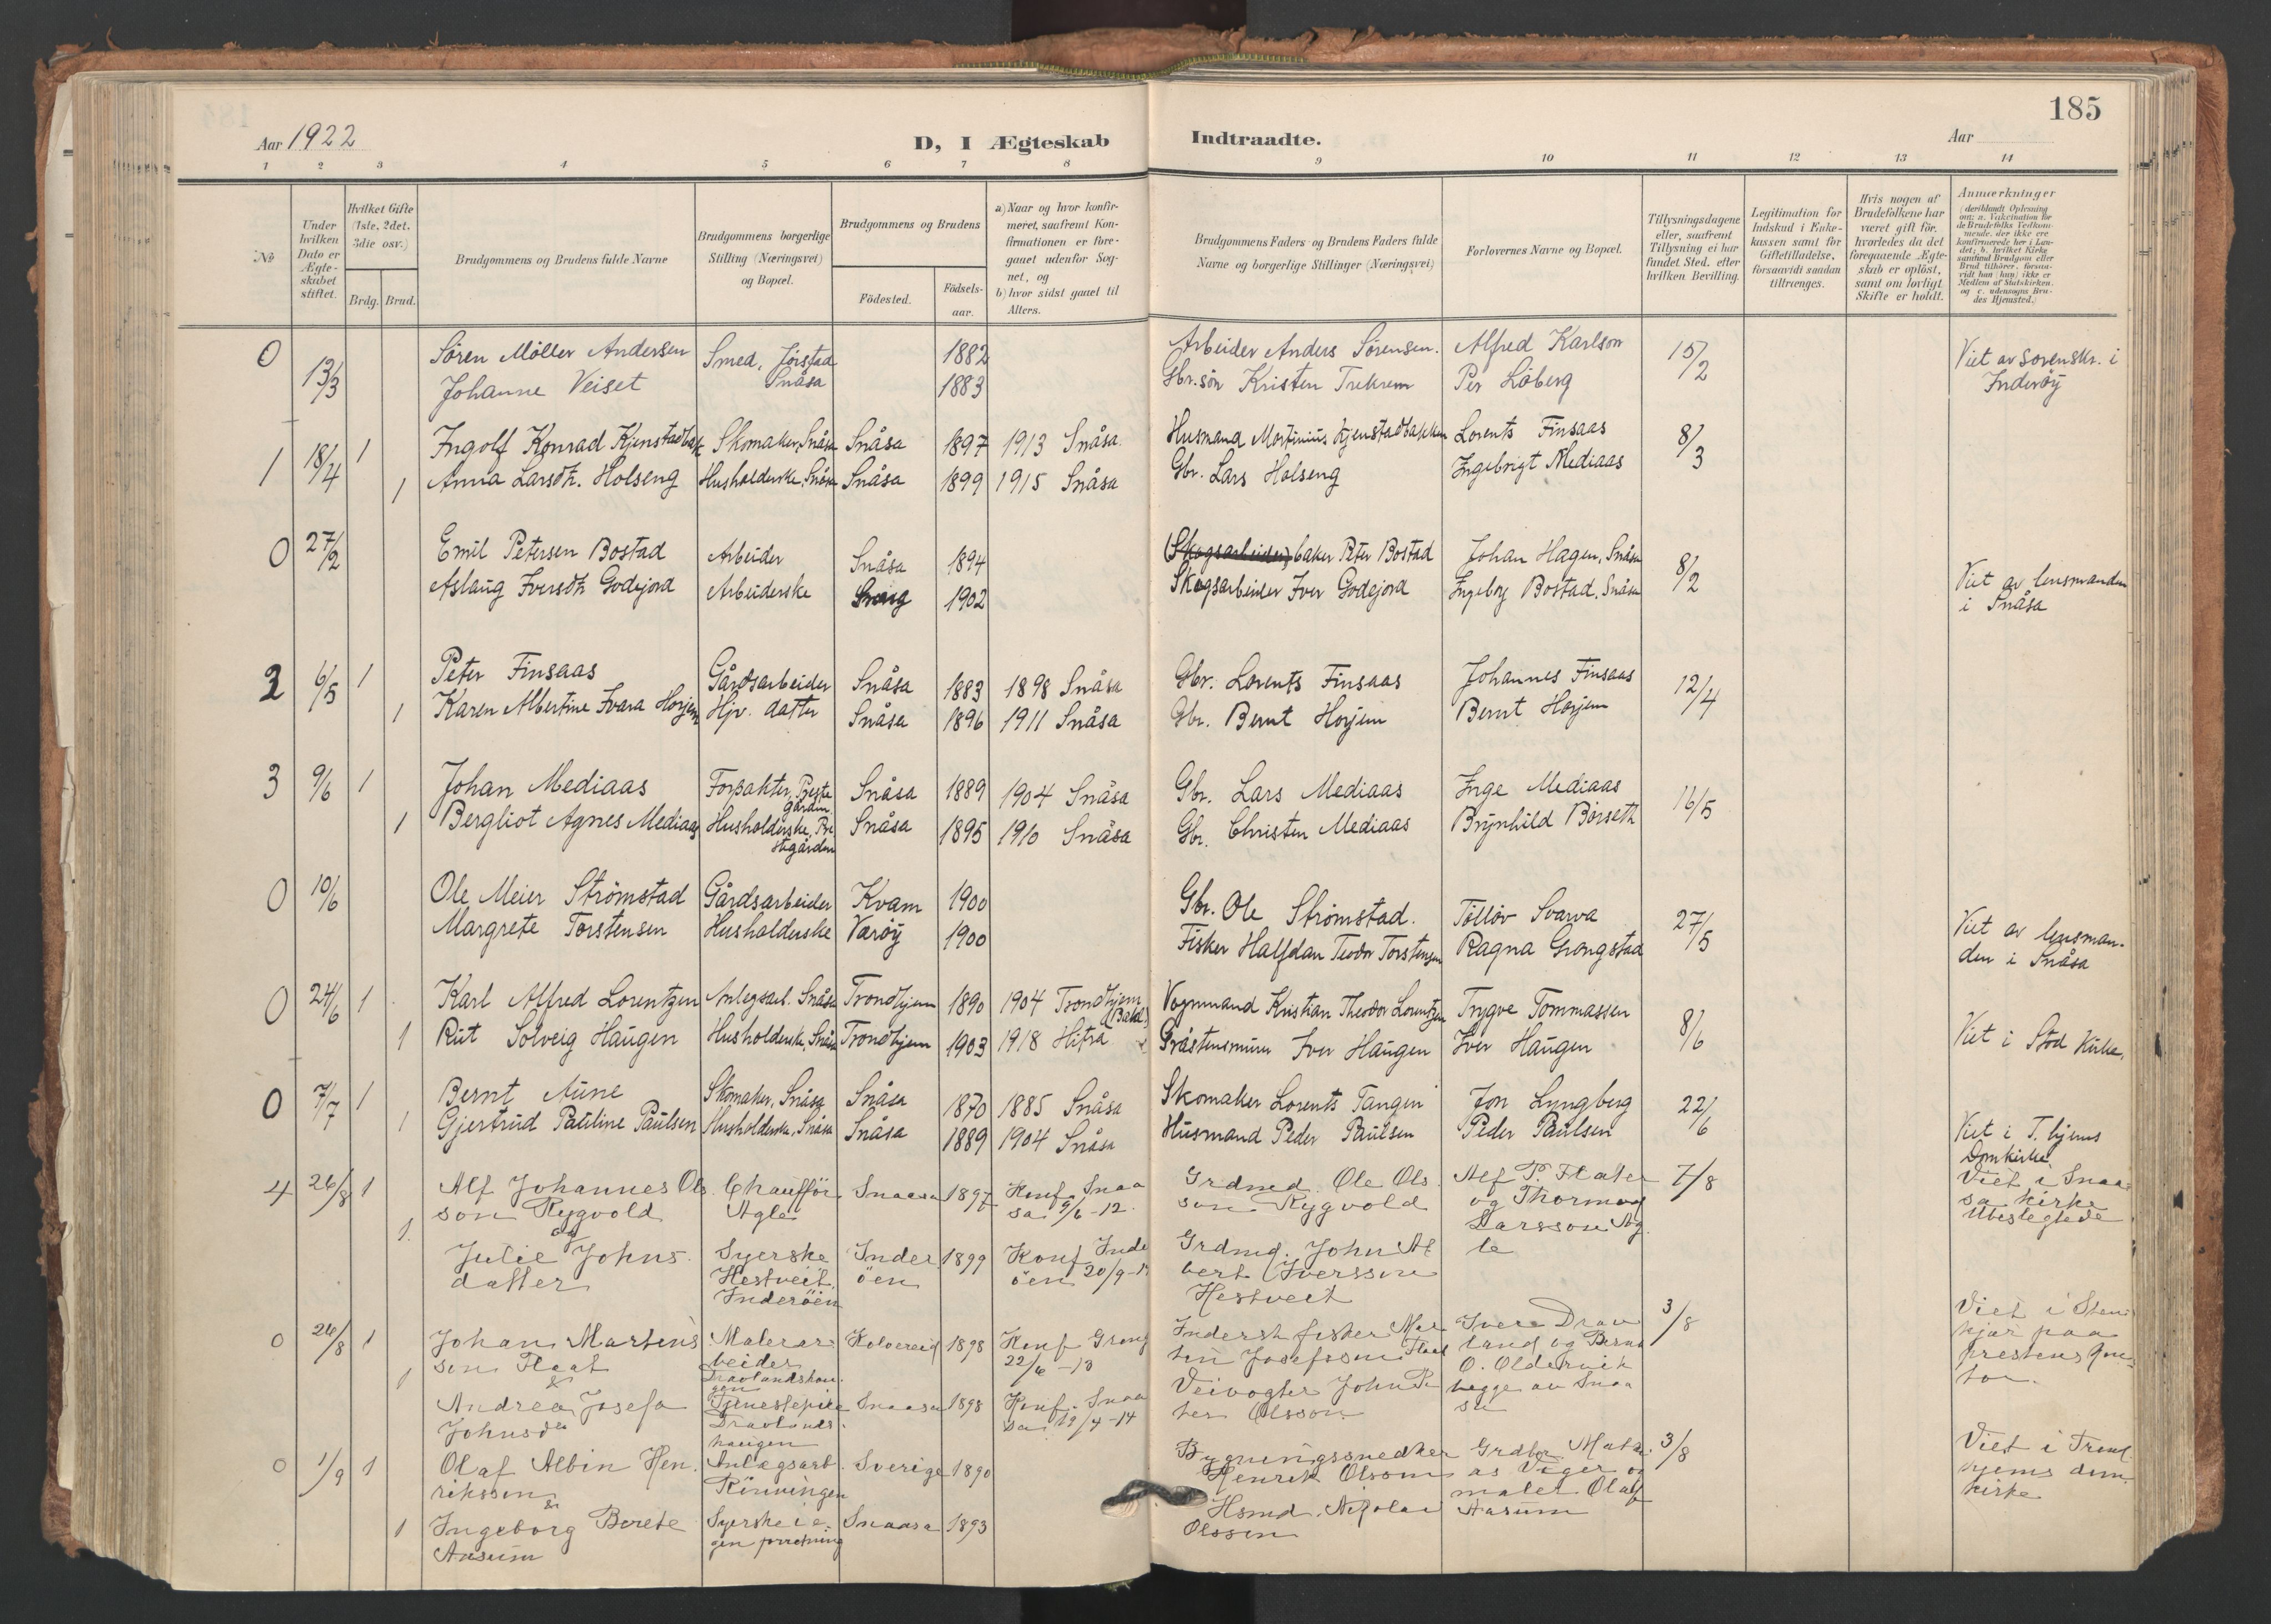 185
Aar 1922
D, I Ægteskab Indtraadte.
Aar
1 2 3 4 5 6 7 8 9 10 11 12 13 14
No
Under hvilken Dato er Ægte- skabet stiftet.
Hvilket Gifte (1ste, 2det, 3die osv.)
Brdg. Brud.
Brudgommens og Brudens fulde Navne
Brudgommens borgerlige Stilling (Næringsvei) og Bopæl.
Brudgommens og Brudens
Fødested.
Fødsels- aar.
a) Naar og hvor konfir- meret, saafremt Kon- firmationen er fore- gaaet udenfor Sog- net, og b) hvor sidst gaaet til Alters.
Brudgommens Faders og Brudens Faders fulde Navne og borgerlige Stillinger (Næringsvei)
Forlovernes Navne og Bopæl.
Tillysningsdagene eller, saafremt Tillysning ei har fundet Sted, efter hvilken Bevilling.
Legitimation for Indskud i Enke- kassen samt for Giftetilladelse, forsaavidt saadan tiltrænges.
Hvis nogen af Brudefolkene har været gift før, hvorledes da det foregaaende Ægte- skab er opløst, samt om lovligt Skifte er holdt.
Anmærkninger (deriblandt Oplysning om: a. Vakcination for de Brudefolks Vedkom- mende, der ikke ere konfirmerede her i Lan- det; b. hvilket Kirke- samfund Brudgom eller Brud tilhører, forsaa- vidt han (hun) ikke er Medlem af Statskirken, og c. udensogns Bru- des Hjemsted.)
0 13/3 Sören Möller Andersen Smed, Jörstad 1882 Arbeider Anders Sörensen. Alfred Karlson 15/2 Viet av sorenskr. i
Johanne Veiset Snåsa 1883 Gbr.søn Kristen Trekrem Per Löberg Inderøy
1 18/4 1 Ingolf Konrad Kjenstadbak Skomaker, Snåsa Snåsa 1897 1913 Snåsa. Husmand Martinius Kjenstadbakken Lorents Finsaas 8/3
1 Anna Larsdt. Holseng Husholderske, Snåsa Snåsa 1899 1915 Snåsa Gbr. Lars Holseng Ingebrigt Mediaas
0 27/2 Emil Petersen Bostad Arbeider Snåsa 1894 (Skogsarbeider) baker Peter Bostad Johan Hagen, Snåsa 8/2
Aslaug Iversdt. Godejord Arbeiderske 1902 Skogsarbeider Iver Godejord Ingeborg Bostad, Snåsa Viet av lensmanden
i Snåsa
2 6/5 1 Peter Finsaas Gårdsarbeider Snåsa 1883 1898 Snåsa Gbr. Lorents Finsaas Johannes Finsaas 12/4
1 Karen Albertine Ivara Horjem Hjv. datter Snåsa 1896 1911 Snåsa Gbr. Bernt Horjem Bernt Horjem
3 9/6 1 Johan Mediaas Forpakter, Preste Snåsa 1889 1904 Snåsa Gbr. Lars Mediaas Inge Mediaas 16/5
gården
1 Bergliot Agnes Mediaas Husholderske, Pre Snåsa 1895 1910 Snåsa Gbr. Christen Mediaas Brynhild Börseth
stegården
0 10/6 Ole Meier Strömstad Gårdsarbeider Kvam 1900 Gbr. Ole Strömstad. Tölløv Svarva 27/5 Viet av lensman-
Margrete Torstensen Husholderske Værøy 1900 Fisker Halfdan Teodor Torstensen Ragna Grongstad den i Snåsa
0 24/6 1 Karl Alfred Lorentzen Anlegsarb. Snåsa Trondhjem 1890 1904 Trondhjem Vognmand Kristian Theodor Lorentzen Trygve Tommassen 8/6
1 Rut Solveig Haugen Husholderske, Snåsa Trondhjem 1903 1918 Hitra Gråstensmurer Iver Haugen Iver Haugen Viet i Stod Kirke.
0 7/7 1 Bernt Aune Skomaker, Snåsa Snåsa 1870 1885 Snåsa Skomaker Lorents Tangen Jon Lyngberg 22/6
1 Gjertrud Pauline Paulsen Husholderske, Snåsa Snåsa 1889 1904 Snåsa Husmand Peder Paulsen Peder Paulsen Viet i T.hjems
Domkirke
4 26/8 1 Alf Johannes Ols Chaufför Snaasa 1897 Konf. Snaa Grdmd. Ole Ols Alf P. Flater 7/8 Viet i Snaa
1. son Rygvold Agle sa 9/6-12. son Rygvold og Thormod sa kirke
og Larsson Ag Ubeslegtede
Julie Johns Syerske Inder 1899 Konf Inde Grdmd. John Al le
datter Hestveit öen öen 20/9-1 bert Iversson
Inderöen Hestveit
0 26/8 1 Johan Martens Malerar Kolvereid 1898 Konf Grong Indersk fisker Mar Iver Drav 3/8 Viet i Sten
1 sen Flaat beider 22/6-13 tin Josefsson Flaat land og Bernt kjær paa
& Dravlandshau O. Oldervik prestens kon
gen
Andrea Josefa Tjenestepike Snaasa 1898 Konf. Snaa Veivogter John Pe begge av Snaa tor.
Johnsdr. Dravlands sa 19/4-14 ter Olsson sa
haugen
0 1/9 1 Olaf Albin Hen Anlægsarb. Sverige 1890 Bygningssnedker Grdbr. Mathi 3/8 Viet i Trond
rikssen Rönningen Henrik Olsson as Viger og hjems dom
& maler Olaf kirke
1 Ingeborg Berete Syerske i e Snaasa 1893 Hsmd. Nikolai Aasum
Aasum gen forretning Olsson